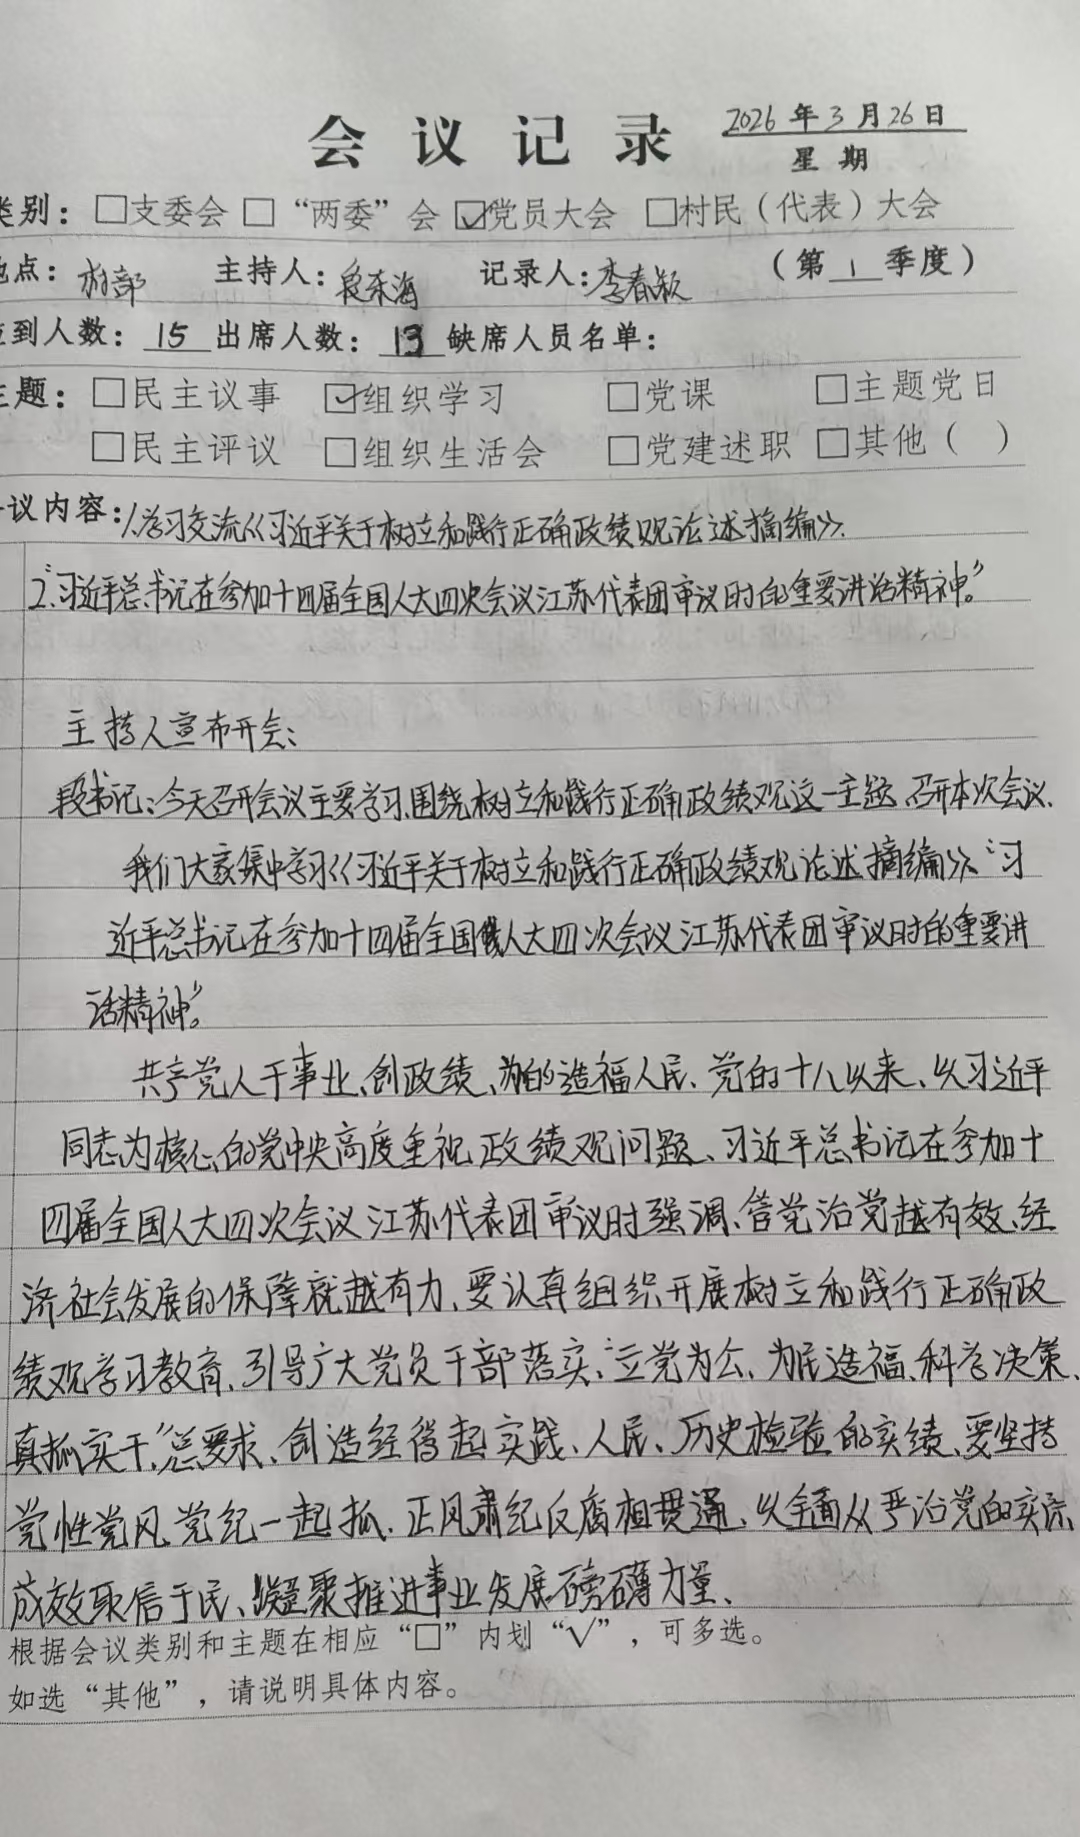 会议记录 2026年3月26日
星期
类别：□支委会 □“两委”会 ☑党员大会 □村民（代表）大会
地点：村部 主持人：段东海 记录人：李春颖 （第1季度）
应到人数：15 出席人数：13 缺席人员名单：
主题：□民主议事 ☑组织学习 □党课 □主题党日
□民主评议 □组织生活会 □党建述职 □其他（ ）
会议内容：1、学习交流《习近平关于树立和践行正确政绩观论述摘编》.
2、“习近平总书记在参加十四届全国人大四次会议江苏代表团审议时的重要讲话精神。”
主持人宣布开会：
段书记：今天召开会议主要学习、围绕树立和践行正确政绩观这一主题、召开本次会议.
我们大家集中学习《习近平关于树立和践行正确政绩观论述摘编》、“习
近平总书记在参加十四届全国人大四次会议江苏代表团审议时的重要讲
话精神”。
共产党人干事业、创政绩、为的造福人民、党的十八以来、以习近平
同志为核心的党中央高度重视政绩观问题、习近平总书记在参加十
四届全国人大四次会议江苏代表团审议时强调、管党治党越有效、经
济社会发展的保障就越有力、要认真组织开展树立和践行正确政
绩观学习教育、引导广大党员干部落实、“立党为公、为民造福、科学决策、
真抓实干、”总要求、创造经得起实践、人民、历史检验的实绩、要坚持
党性党风党纪一起抓、正风肃纪反腐相贯通、以全面从严治党的实际
成效取信于民、凝聚推进事业发展磅礴力量、
根据会议类别和主题在相应“□”内划“√”，可多选。
如选“其他”，请说明具体内容。